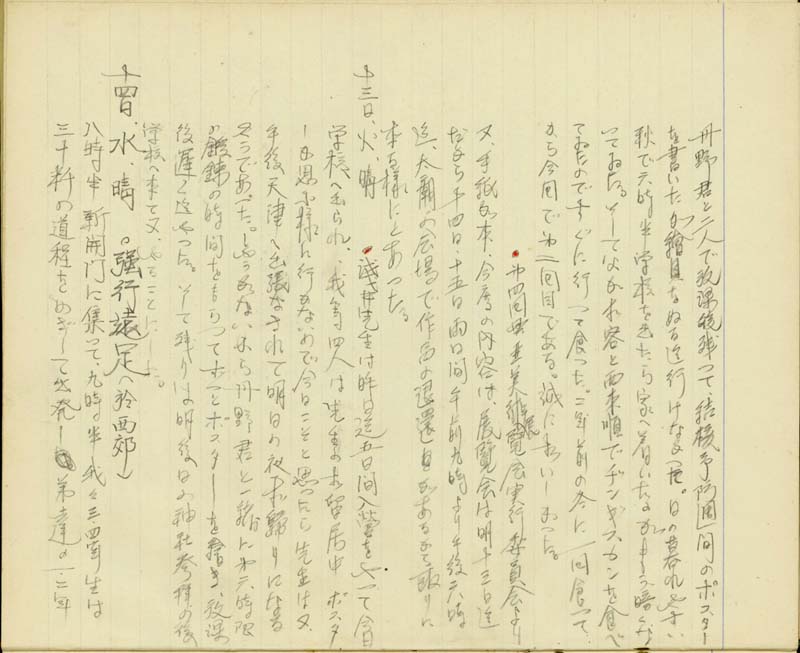 丹野君と二人で放課後残って、結核予防週間のポスター
を書いたが繪具をぬる迄行けなかった。日の暮れやすい
秋で六時半学校を出たら家へ着いた
ってゐた。そしてな お客と西来順でヂンギスカンを食べ
てゐたのですぐに行って食った。二年前の冬に一回食って、
から今回で 二回目である。誠に おいしかった。
美術展覧会実行委員会より
又、手紙が来、今度の内容は、展覧会は明十三日迄
だから十四日、十五日両日間午前九時より午後六時
迄、大 の会場で作品の返還 があるから取りに
来る様にとあった。
十三日、火、晴 浅井先生は昨日迄五日間入営をやって今日
学校へ出られ、我等四人は先生のお留居中 ポスタ
ーも思ふ様に行かないので今日こそと思ったら先生は又、
午後天津へ出張なされて明日の夜お歸りになる
そうであった。 から丹野君と一緒に 六時限
の鍛錬の時間をもらってポスターを書き、放課
後遅く迄やった。そして残りは明後日の神社参拝の後
学校へ来て又、やることにした。
十四日、水、晴 。強行遠足(於西郊)
八時半 新開門に集って、九時半 我々三、四年生は
三十粁の道程をめざして出発し 弟達の一、二年